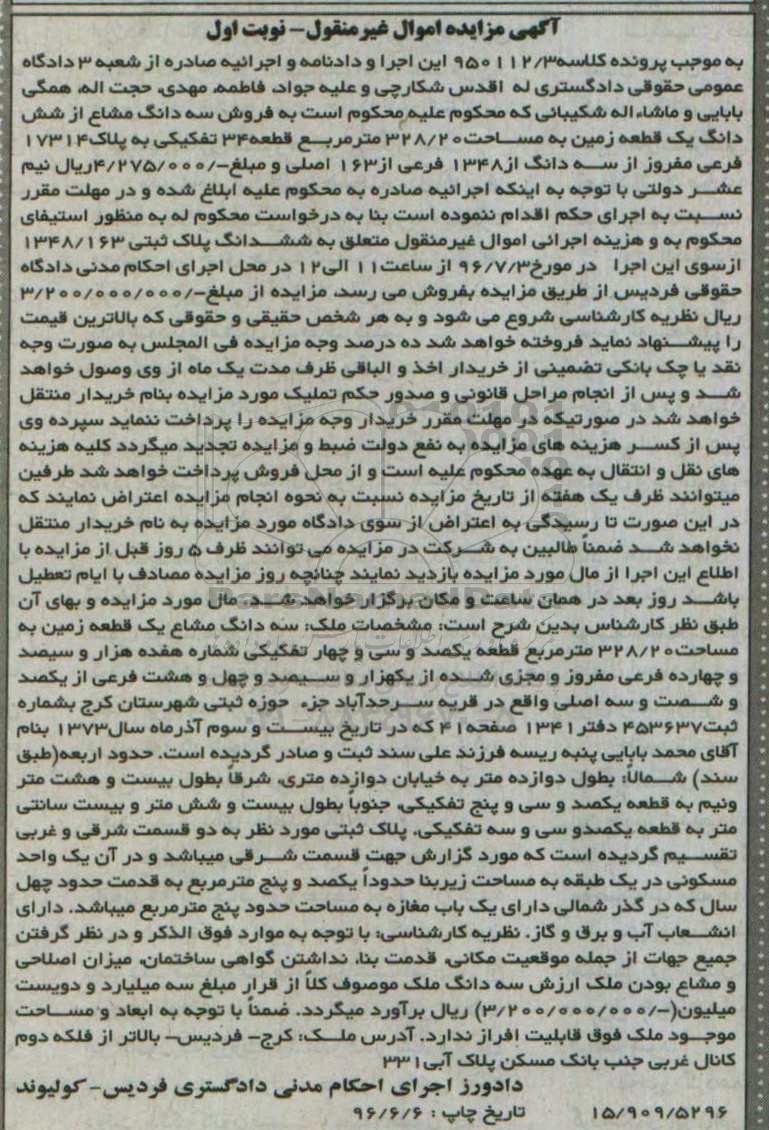 آگهی مزایده اموال غیرمنقول- نوبت اول
به موجب پرونده کلاسه۹۵۰۱۱۲/۳ این اجرا و دادنامه و اجرائیه صادره از شعبه ۳ دادگاه
عمومی حقوقی دادگستری له اقدس شکارچی و علیه جواد، فاطمه، مهدی، حجت اله، همگی
بابایی و ماشاءاله شکیبائی که محکوم علیه محکوم است به فروش سه دانگ مشاع از شش
دانگ یک قطعه زمین به مساحت۳۲۸/۲۰ مترمربع قطعه۳۴ تفکیکی به پلاک۱۷۳۱۴
فرعی مفروز از سه دانگ از۱۳۴۸ فرعی از۱۶۳ اصلی و مبلغ-/۴/۲۷۵/۰۰۰ریال نیم
عشر دولتی با توجه به اینکه اجرائیه صادره به محکوم علیه ابلاغ شده و در مهلت مقرر
نسبت به اجرای حکم اقدام ننموده است بنا به درخواست محکوم له به منظور استیفای
محکوم به و هزینه اجرائی اموال غیرمنقول متعلق به ششدانگ پلاک ثبتی ۱۳۴۸/۱۶۳
ازسوی این اجرا در مورخ۹۶/۷/۳ از ساعت۱۱ الی۱۲ در محل اجرای احکام مدنی دادگاه
حقوقی فردیس از طریق مزایده بفروش می رسد، مزایده از مبلغ-/۳/۲۰۰/۰۰۰/۰۰۰
ریال نظریه کارشناسی شروع می شود و به هر شخص حقیقی و حقوقی که بالاترین قیمت
را پیشنهاد نماید فروخته خواهد شد ده درصد وجه مزایده فی المجلس به صورت وجه
نقد یا چک بانکی تضمینی از خریدار اخذ و الباقی ظرف مدت یک ماه از وی وصول خواهد
شد و پس از انجام مراحل قانونی و صدور حکم تملیک مورد مزایده بنام خریدار منتقل
خواهد شد در صورتیکه در مهلت مقرر خریدار وجه مزایده را پرداخت ننماید سپرده وی
پس از کسر هزینه های مزایده به نفع دولت ضبط و مزایده تجدید میگردد کلیه هزینه
های نقل و انتقال به عهده محکوم علیه است و از محل فروش پرداخت خواهد شد طرفین
میتوانند ظرف یک هفته از تاریخ مزایده نسبت به نحوه انجام مزایده اعتراض نمایند که
در این صورت تا رسیدگی به اعتراض از سوی دادگاه مورد مزایده به نام خریدار منتقل
نخواهد شد ضمناً طالبین به شرکت در مزایده می توانند ظرف ۵ روز قبل از مزایده با
اطلاع این اجرا از مال مورد مزایده بازدید نمایند چنانچه روز مزایده مصادف با ایام تعطیل
باشد روز بعد در همان ساعت و مکان برگزار خواهد شد. مال مورد مزایده و بهای آن
طبق نظر کارشناس بدین شرح است: مشخصات ملک: سه دانگ مشاع یک قطعه زمین به
مساحت۳۲۸/۲۰ مترمربع قطعه یکصد و سی و چهار تفکیکی شماره هفده هزار و سیصد
و چهارده فرعی مفروز و مجزی شده از یکهزار و سیصد و چهل و هشت فرعی از یکصد
و شصت و سه اصلی واقع در قریه سرحدآباد جزء حوزه ثبتی شهرستان کرج بشماره
ثبت۴۵۳۶۳۷ دفتر۱۳۴۱ صفحه۴۱ که در تاریخ بیست و سوم آذرماه سال۱۳۷۳ بنام
آقای محمد بابایی پنبه ریسه فرزند علی سند ثبت و صادر گردیده است. حدود اربعه(طبق
سند) شمالاً: بطول دوازده متر به خیابان دوازده متری، شرقاً بطول بیست و هشت متر
ونیم به قطعه یکصد و سی و پنج تفکیکی، جنوباً بطول بیست و شش متر و بیست سانتی
متر به قطعه یکصدو سی و سه تفکیکی. پلاک ثبتی مورد نظر به دو قسمت شرقی و غربی
تقسیم گردیده است که مورد گزارش جهت قسمت شرقی میباشد و در آن یک واحد
مسکونی در یک طبقه به مساحت زیربنا حدوداً یکصد و پنج مترمربع به قدمت حدود چهل
سال که در گذر شمالی دارای یک باب مغازه به مساحت حدود پنج مترمربع میباشد. دارای
انشعاب آب و برق و گاز. نظریه کارشناسی: با توجه به موارد فوق الذکر و در نظر گرفتن
جمیع جهات از جمله موقعیت مکانی، قدمت بنا، نداشتن گواهی ساختمان، میزان اصلاحی
و مشاع بودن ملک ارزش سه دانگ ملک موصوف کلاً از قرار مبلغ سه میلیارد و دویست
میلیون(-/۳/۲۰۰/۰۰۰/۰۰۰) ریال برآورد میگردد. ضمناً با توجه به ابعاد و مساحت
موجود ملک فوق قابلیت افراز ندارد. آدرس ملک: کرج- فردیس- بالاتر از فلکه دوم
کانال غربی جنب بانک مسکن پلاک آبی۳۳۱
دادورز اجرای احکام مدنی دادگستری فردیس- کولیوند
۱۵/۹۰۹/۵۲۹۶ تاریخ چاپ : ۹۶/۶/۶